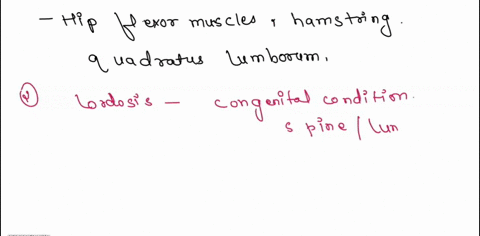 - Hip flexor muscles, hamstring.
quadratus lumborum.
② Lordosis - congenital condition.
spine / lun